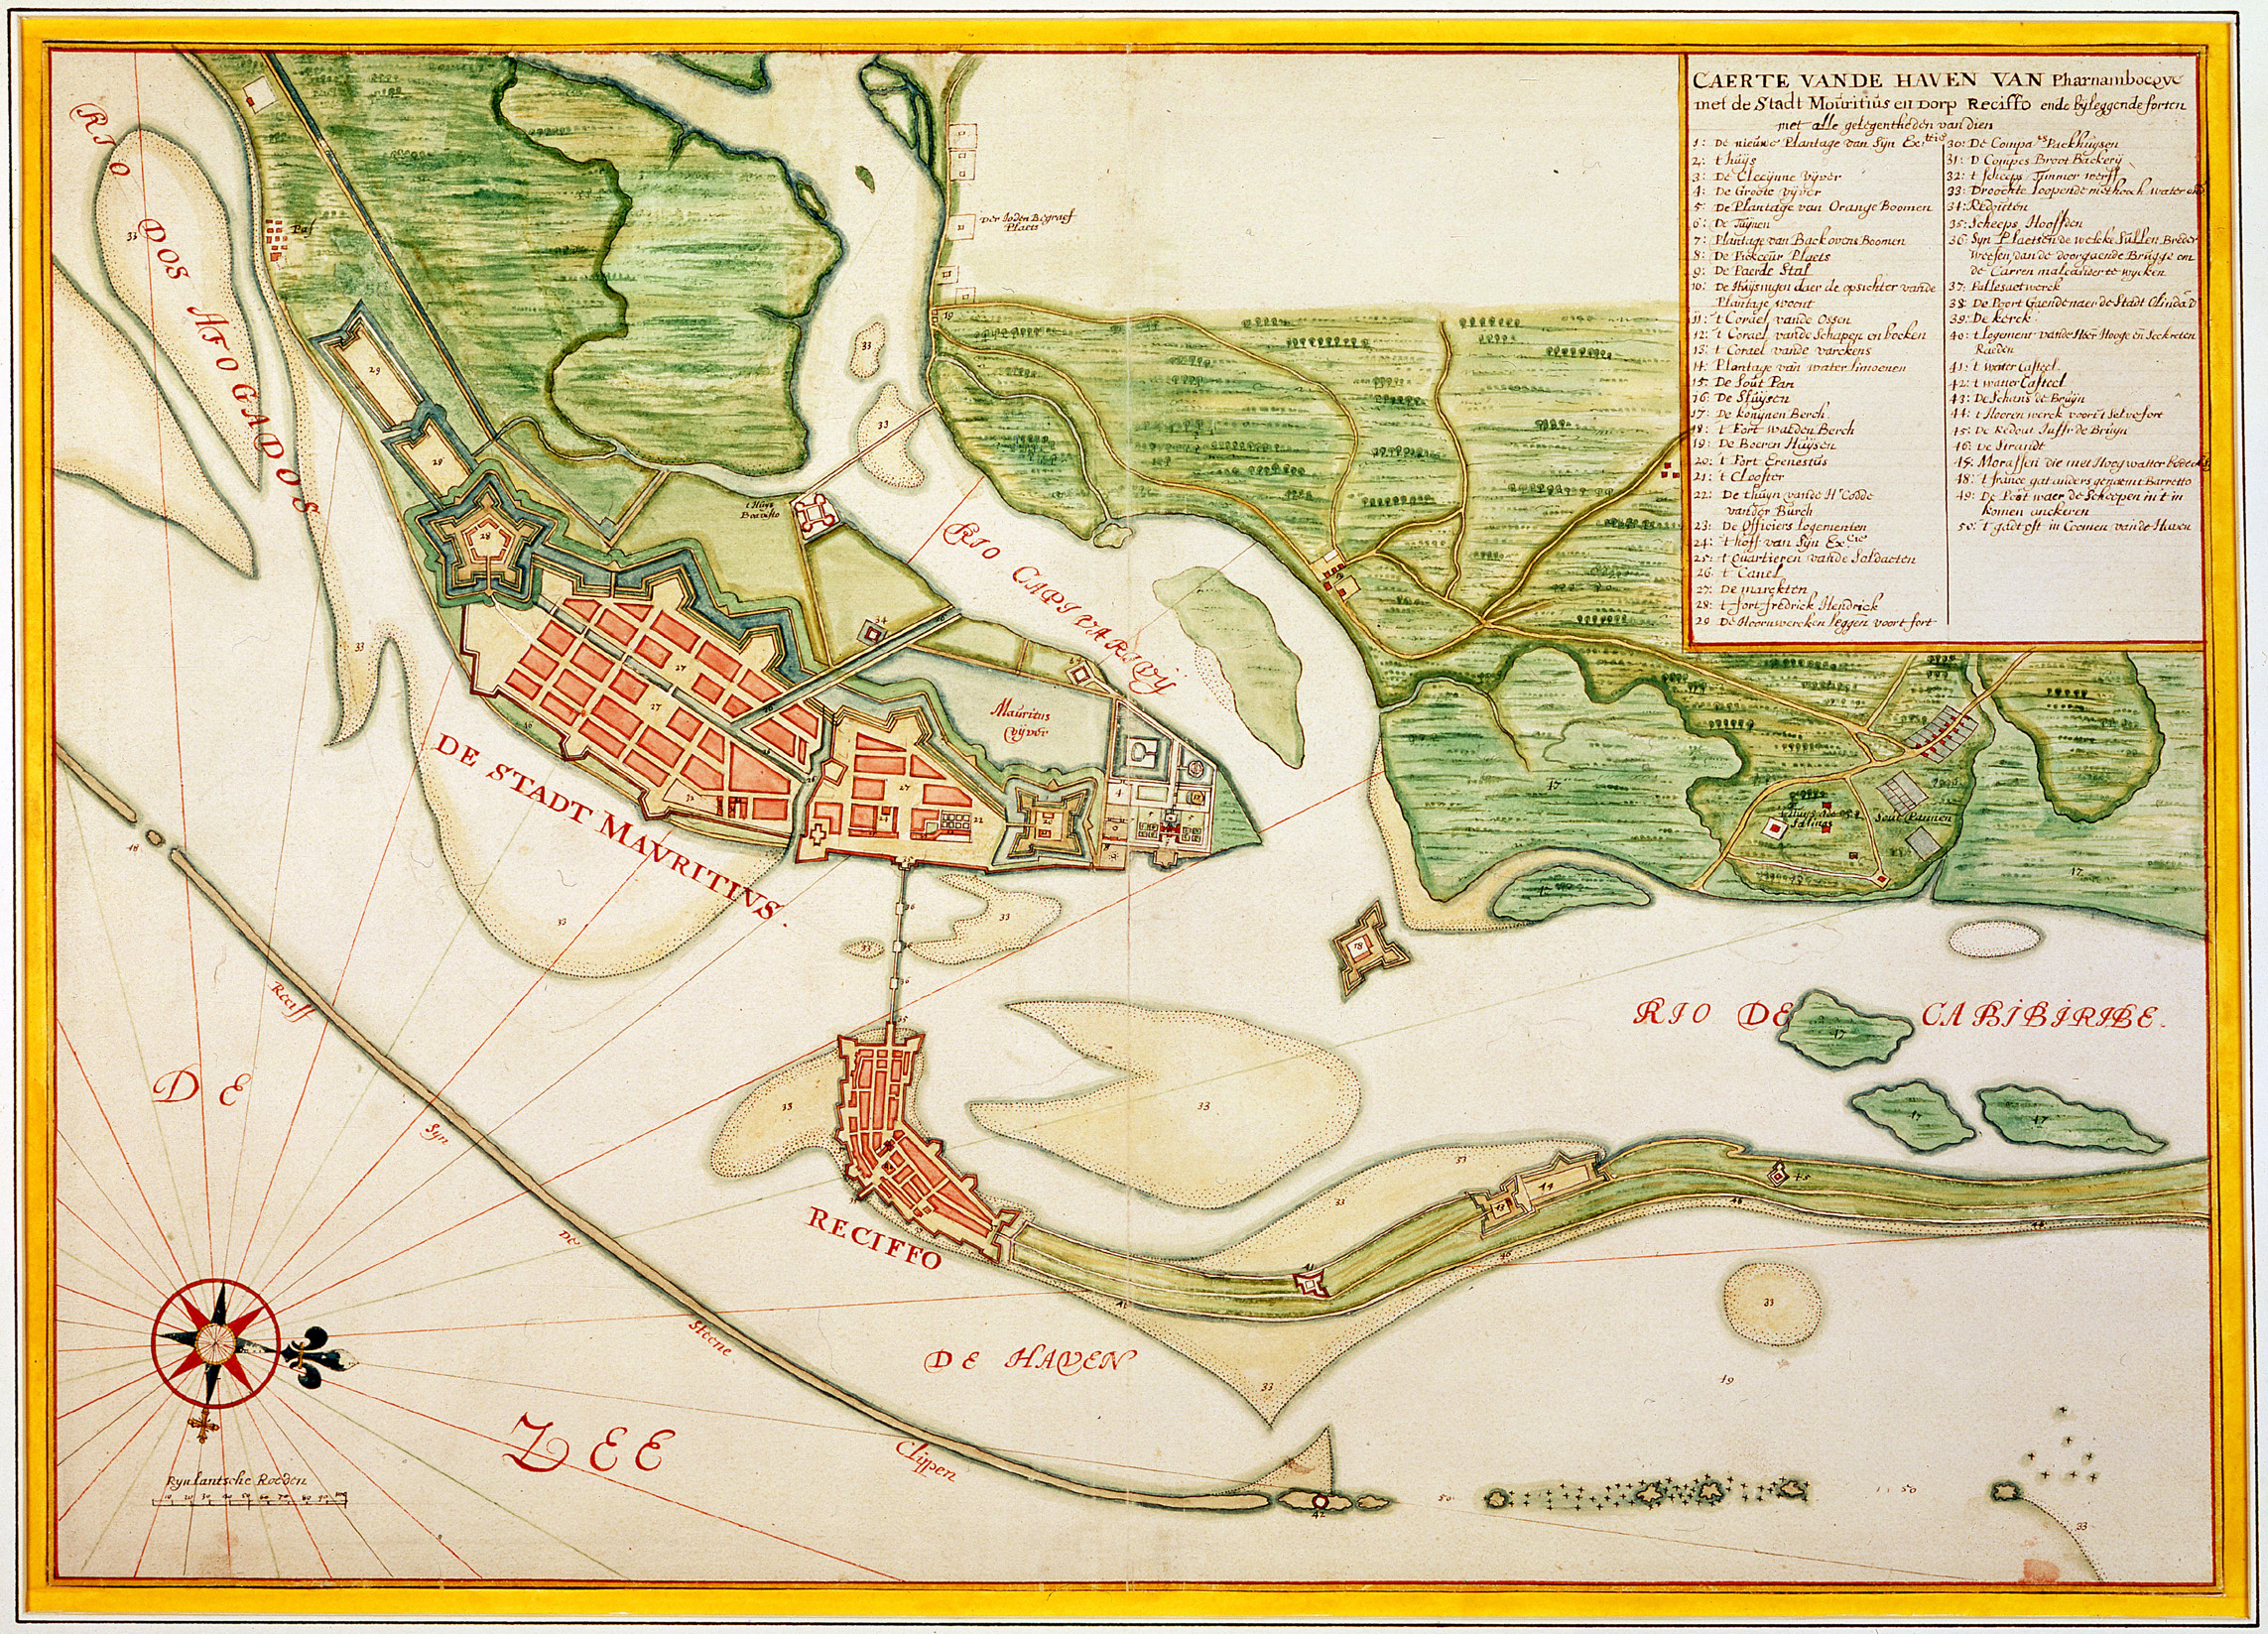 CAERTE VANDE HAVEN VAN Pharnambocqve
met de Stadt Mouritius en Dorp Reciffo ende byleggende forten
met alle gelegentheden van dien
1: De nieuwe Plantage van Syn Ex:
2: t huys
3: De Cleeynne Vyver
4: De Groote vyver
5: De Plantage van Orange Boomen
6: De Tuynen
7: Plantage van Backovens Boomen
8: De Plaets
9: De Paerde Stal
10: De Huysingen daer de opsichter vande
Plantage woont
11: t Corael vande Ossen
12: t Corael vande Schapen en bocken
13: t Corael vande varckens
14: Plantage van water limoenen
15: De Sout Pan
16: De Sluysen
17: De konynen Berch
18: t Fort waerden Berch
19: De Boeren Huysen
20: t Fort Erenestus
21: t Clooster
22: De thuyn vande Hr Codde
vander Burch
23: De Officiers logementen
24: t hoff van Syn Ex
25: t Quartieren vande Soldaeten
26: t Canel
27: De marckten
28: t fort fredrick Hendrick
29: De Hoornwercken leggen voort fort
30: De Compa Packhuysen
31: D Compes Broot Backery
32: t scheeps Timmer werff
33: Droochte loopende met hooch water
34: Redouten
35: Scheeps Hooffden
36: Syn Plaetsen de welcke sullen Breder
weesen van de doorgaende Brugge om
de Carren malcander te wycken
37: Pallesaet werck
38: De Poort Gaende naer de Stadt Olinda
39: De kerck
40: t Logement vande Heer Hooge en Seekreten
Raeden
41: t water Casteel
42: t water Casteel
43: De Schans de Bruyn
44: t Hooren werck voor t selve fort
45: De Redout Juffr de Bruyn
46: De Strandt
Morassen die met Hoog watter
48: t france gat anders genaemt Barretto
49: De waer de Scheepen in t in
komen anckeren
50: t gadt oft in Coemen van de Haven
RIO DOS AFOGADOS
33
Pas
Der Joden Begraef
Plaets
19
33
33
29
28
28
t Huys
Boavista
RIO CAPIVARIVY
34
Mauritus
Vyver
27
27
27
DE STADT MAVRITIVS.
33
33
36
33
33
18
17
t Huys
Salinas
Sout Pannen
17
RIO DE CABIBIRIBE.
17
17
17
33
33
33
33
43
44
45
46
RECIFFO
DE HAVEN
33
33
49
DE
ZEE
Reciff
Syn
De
Steene
Clippen
48
Rynlantsche Roeden
10 20 30 40 50 60 70 80 90 100
42
50
50
33